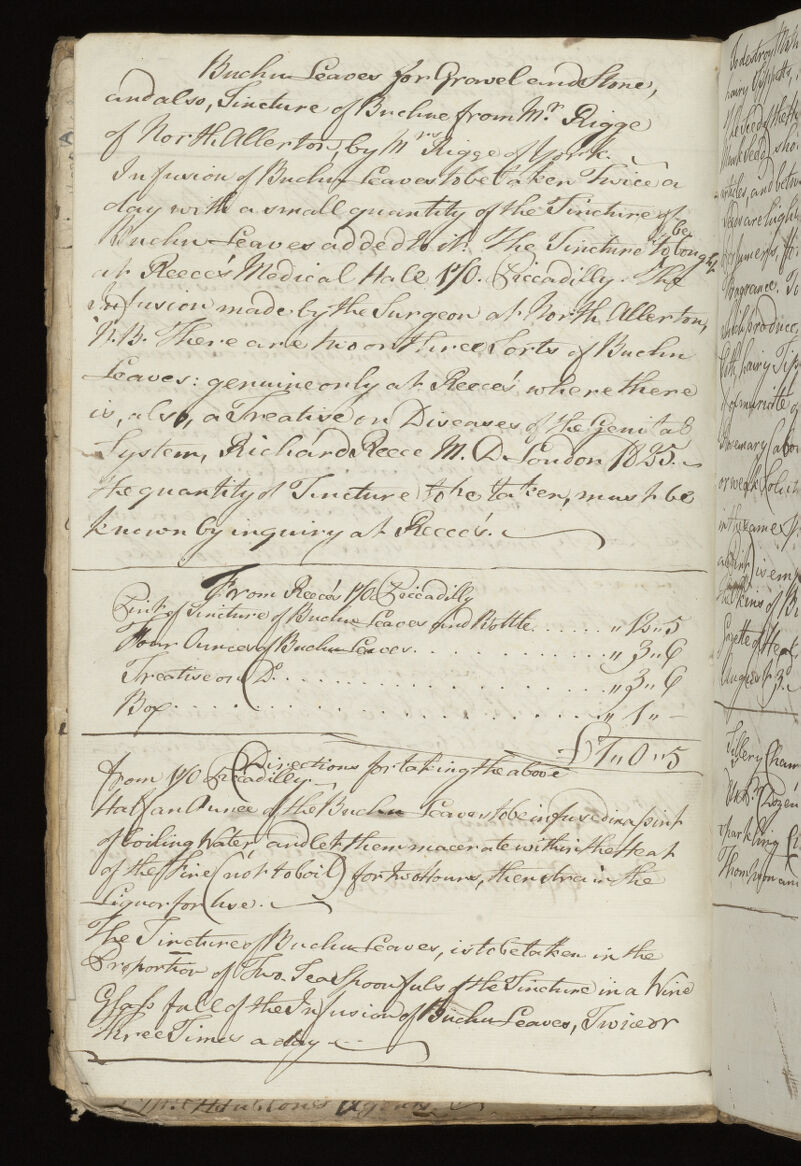 Buchu Leaves for Gravel and Stone,
and also, Tincture of Buchue from Mr. Rigge
of North Allerton, by Mrs Rigge of York.
Infusion of Buchu Leaves to be taken Twice a
day with a small quantity of the Tincture of
Buchu Leaves added to it. The Tincture to be bought
at Reece's Medical Hall 170. Piccadilly. The
Infusion made by the Surgeon at North Allerton,
N.B. There are two or three Sorts of Buchu
Leaves: genuine only at Reece's where there
is, also, a Treatise on Diseases of the Genital
System, Richard Reece M. D. London 1835.
the quantity of Tincture to be taken, must be
known by inquiry at Reece's.
From Reece's 170 Piccadilly
Pint of Tincture of Buchu Leaves and Bottle . . . . . " 12 " 5
Four Ounces of Buchu Leaves . . . . . . . . . . " 3 " 6
Treatise on Do. . . . . . . . . . . . . . . . " 3 " 6
Box . . . . . . . . . . . . . . . . " 1 " -
£ 1 " 0 " 5
Directions for taking the above
from 170 Piccadilly.
Half an Ounce of the Buchu Leaves to be infused in a pint
of boiling Water and let them macerate within the Heat
of the Fire (not to boil) for two Hours, then strain the
Liquor for Use.
The Tincture of Buchu Leaves, is to be taken in the
Proportion of Two Tea Spoonfuls of the Tincture in a Wine
Glass full of the Infusion of Buchu Leaves, Twice or
three Times a day
To destroy
hairy
which produce
Rosemary
or weak
in the same
August 3.
sparkling
Thompson and